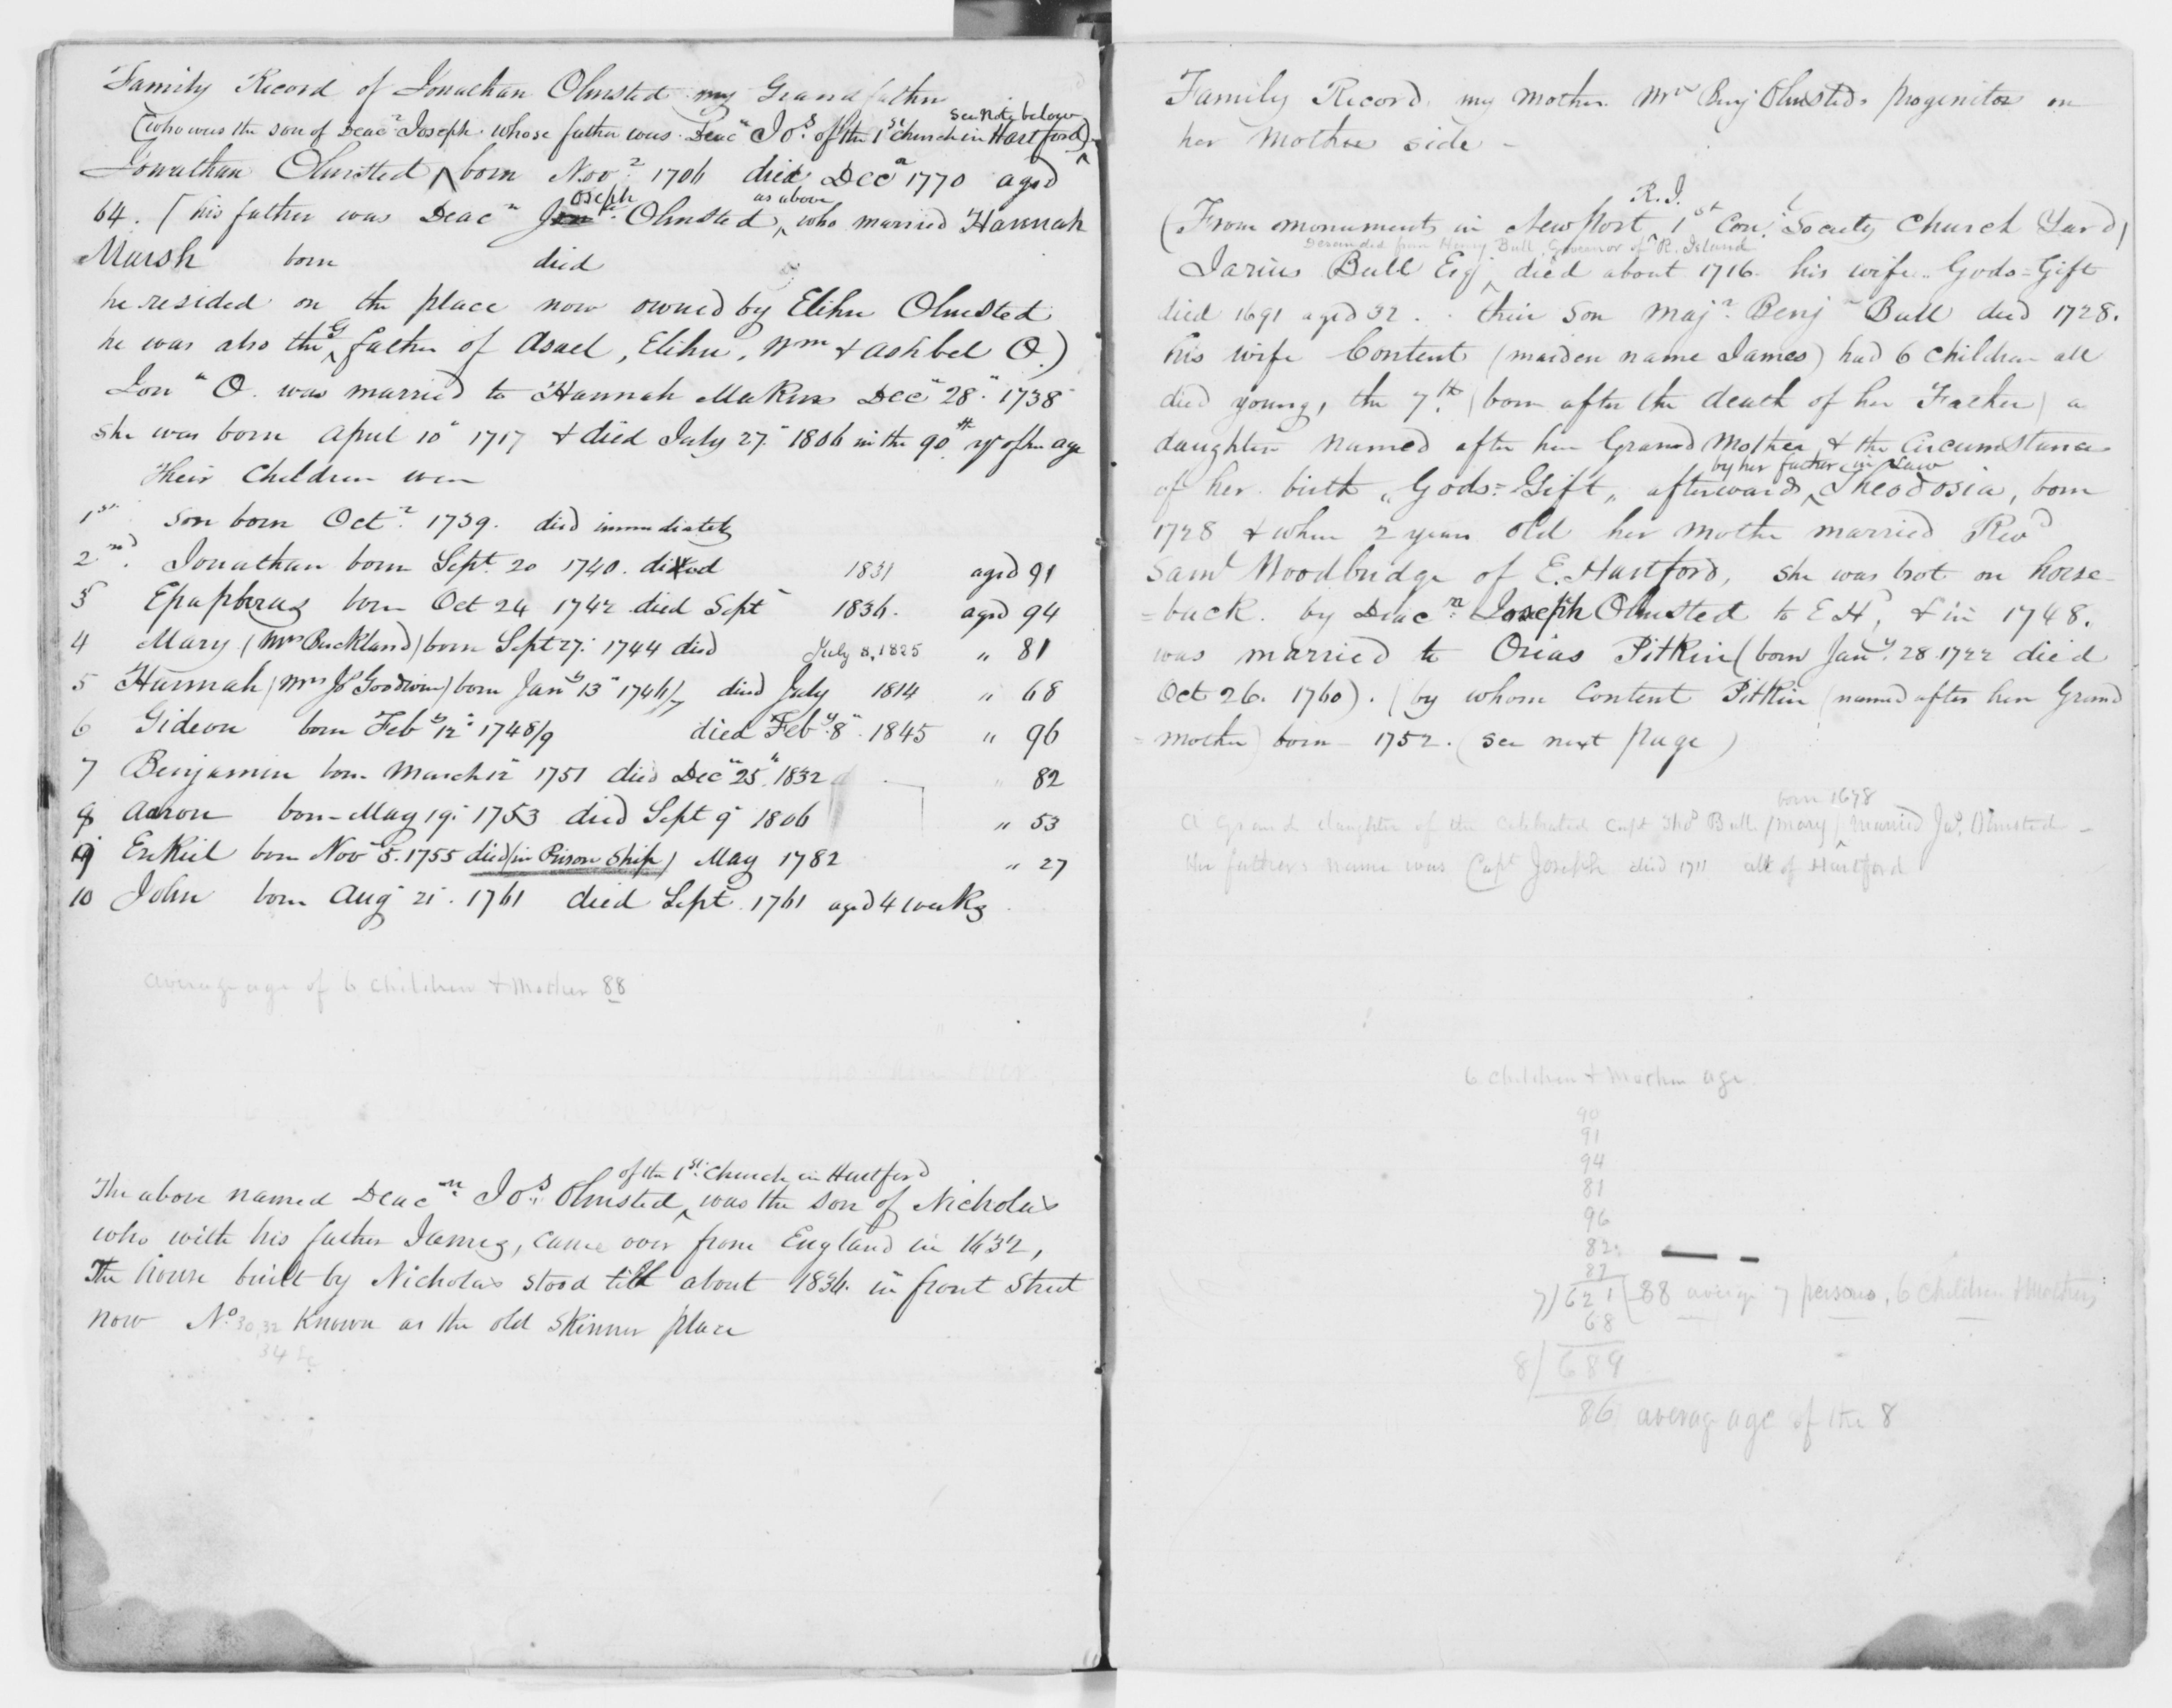 Family Record of Jonathan Olmsted my Grandfather
see Note below
(who was the son of Deacn Joseph whose father was Deacn Jos. of the 1st Church in Hartford)
Jonathan Olmsted born Novr 1706 died Decr 1770 aged
oseph as above
64. (his father was Deacn Jon Olmsted, who married Hannah
Marsh born died
he resided on the place now owned by Elihu Olmsted
he was also the G father of Asael, Elihu, Wm & Ashbel O.)
Jon " O. was married to Hannah Makins Dec " 28 " 1738
she was born April 10 " 1717 & died July 27 " 1806 in the 90th yr of her age
Their Children were
1st son born Octr 1739. died immediately
2nd. Jonathan born Sept. 20 1740. died 1831 aged 91
3 Epaphras born Oct 24 1742 died Sept 1836. aged 94
4 Mary (Mrs Buckland) born Sept 27. 1744 died July 8, 1825 " 81
5 Hannah (Mrs Js Goodwin) born Jany 13 " 1746/7 died July 1814 " 68
6 Gideon born Feby 12 " 1748/9 died Feby 8 " 1845 " 96
7 Benjamin born March 12 " 1751 died Dec " 25 " 1832 " 82
8 Aaron born May 19. 1753 died Sept 9 " 1806 " 53
9 Ezekiel born Nov 5. 1755 died (in Prison Ship) May 1782 " 27
10 John born Aug 21. 1761 died Sept 1761 aged 4 weeks
average age of 6 children & Mother 88
of the 1st Church in Hartford
The above named Deacn Jos. Olmsted, was the son of Nicholas
who with his father James, came over from England in 1632,
The house built by Nicholas stood till about 1836. in front Street
now No. 30, 32 Known as the old Skinner place
34 &c
Family Record my Mother Mrs Benj Olmsteds progenitor on
her Mothers side -
R. I.
(From monuments in Newport 1st Conl. Society Church Yard)
Descended from Henry Bull Governor of R. Island
Jarius Bull Esqr died about 1716. his wife Gods=Gift
died 1691 aged 32. their son Majr. Benjn Bull died 1728.
his wife Content (maiden name James) had 6 children all
died young, the 7th. (born after the death of her Father) a
daughter named after her Grand Mother & the Circumstances
by her father in Law
of her birth "Gods=Gift" afterwards Theodosia, born
1728 & when 2 years old her mother married Revd
Saml Woodbridge of E. Hartford, she was brot on horse-
=back. by Deacn. Joseph Olmsted to E H, & in 1748.
was married to Ozias Pitkin (born Jany. 28. 1722 died
Oct 26. 1760). (by whom Content Pitkin (named after her Grand
=mother) born - 1752. (see next page)
born 1678
A Grand daughter of the celebrated Capt Thos Bull (Mary) married Jos. Olmsted -
the fathers name was Capt Joseph died 1711 all of Hartford
6 children & Mother age.
90
91
94
81
96
82
87
7) 621 (88 average 7 persons, 6 children & Mother
68
8) 689
86 average age of the 8